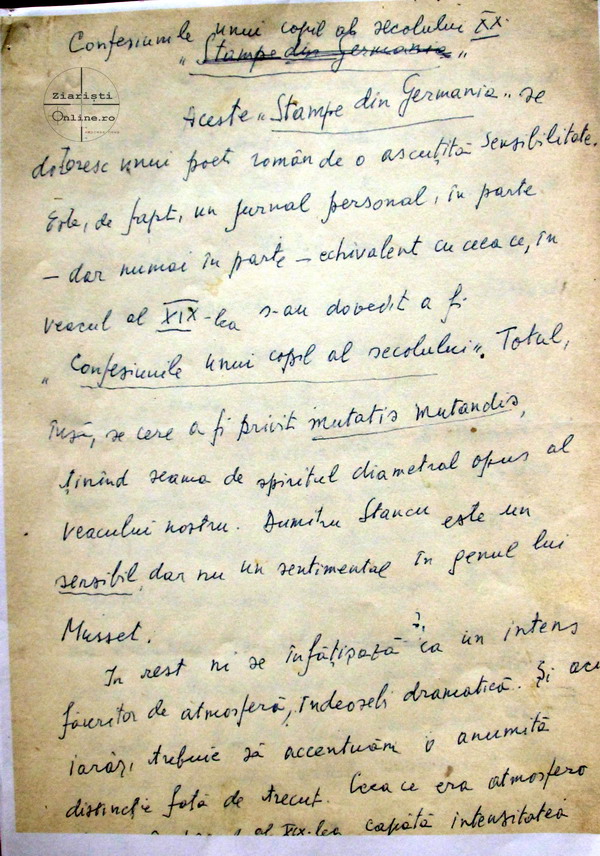 Confesiunile unui copil al secolului XX.
"Stampe din Germania"
Ziariști
Online.ro
Aceste "Stampe din Germania" se
datoresc unui poet român de o ascuțită sensibilitate.
Este, de fapt, un jurnal personal, în parte
– dar numai în parte – echivalent cu ceea ce, în
veacul al XIX-lea s-au dovedit a fi
"Confesiunile unui copil al secolului". Totul,
însă, se cere a fi privit mutatis mutandis,
ținînd seama de spiritul diametral opus al
veacului nostru. Dumitru Stancu este un
sensibil, dar nu un sentimental în genul lui
Musset.
In rest ni se înfățișează ca un intens
făuritor de atmosferă, îndeosebi dramatică. Și acu
iarăși, trebuie să accentuăm o anumită
distincție față de trecut. Ceea ce era atmosfera
al XIX-lea capătă intensitatea